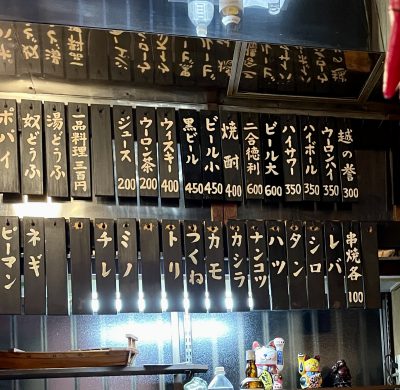 越の誉 300
ウーロンハイ 350
ハイボール 350
ハイサワー 350
ビール大 600
二合徳利 600
焼酎 400
ビール小 450
黒ビール 450
ウィスキ 400
ウーロン茶 200
ジュース 200
一品料理三百円
湯どうふ
奴どうふ
ポパイ
串焼各 100
レバ
シロ
タン
ハツ
ナンコツ
カシラ
カモ
つくね
トリ
ミノ
チレ
ネギ
ピーマン